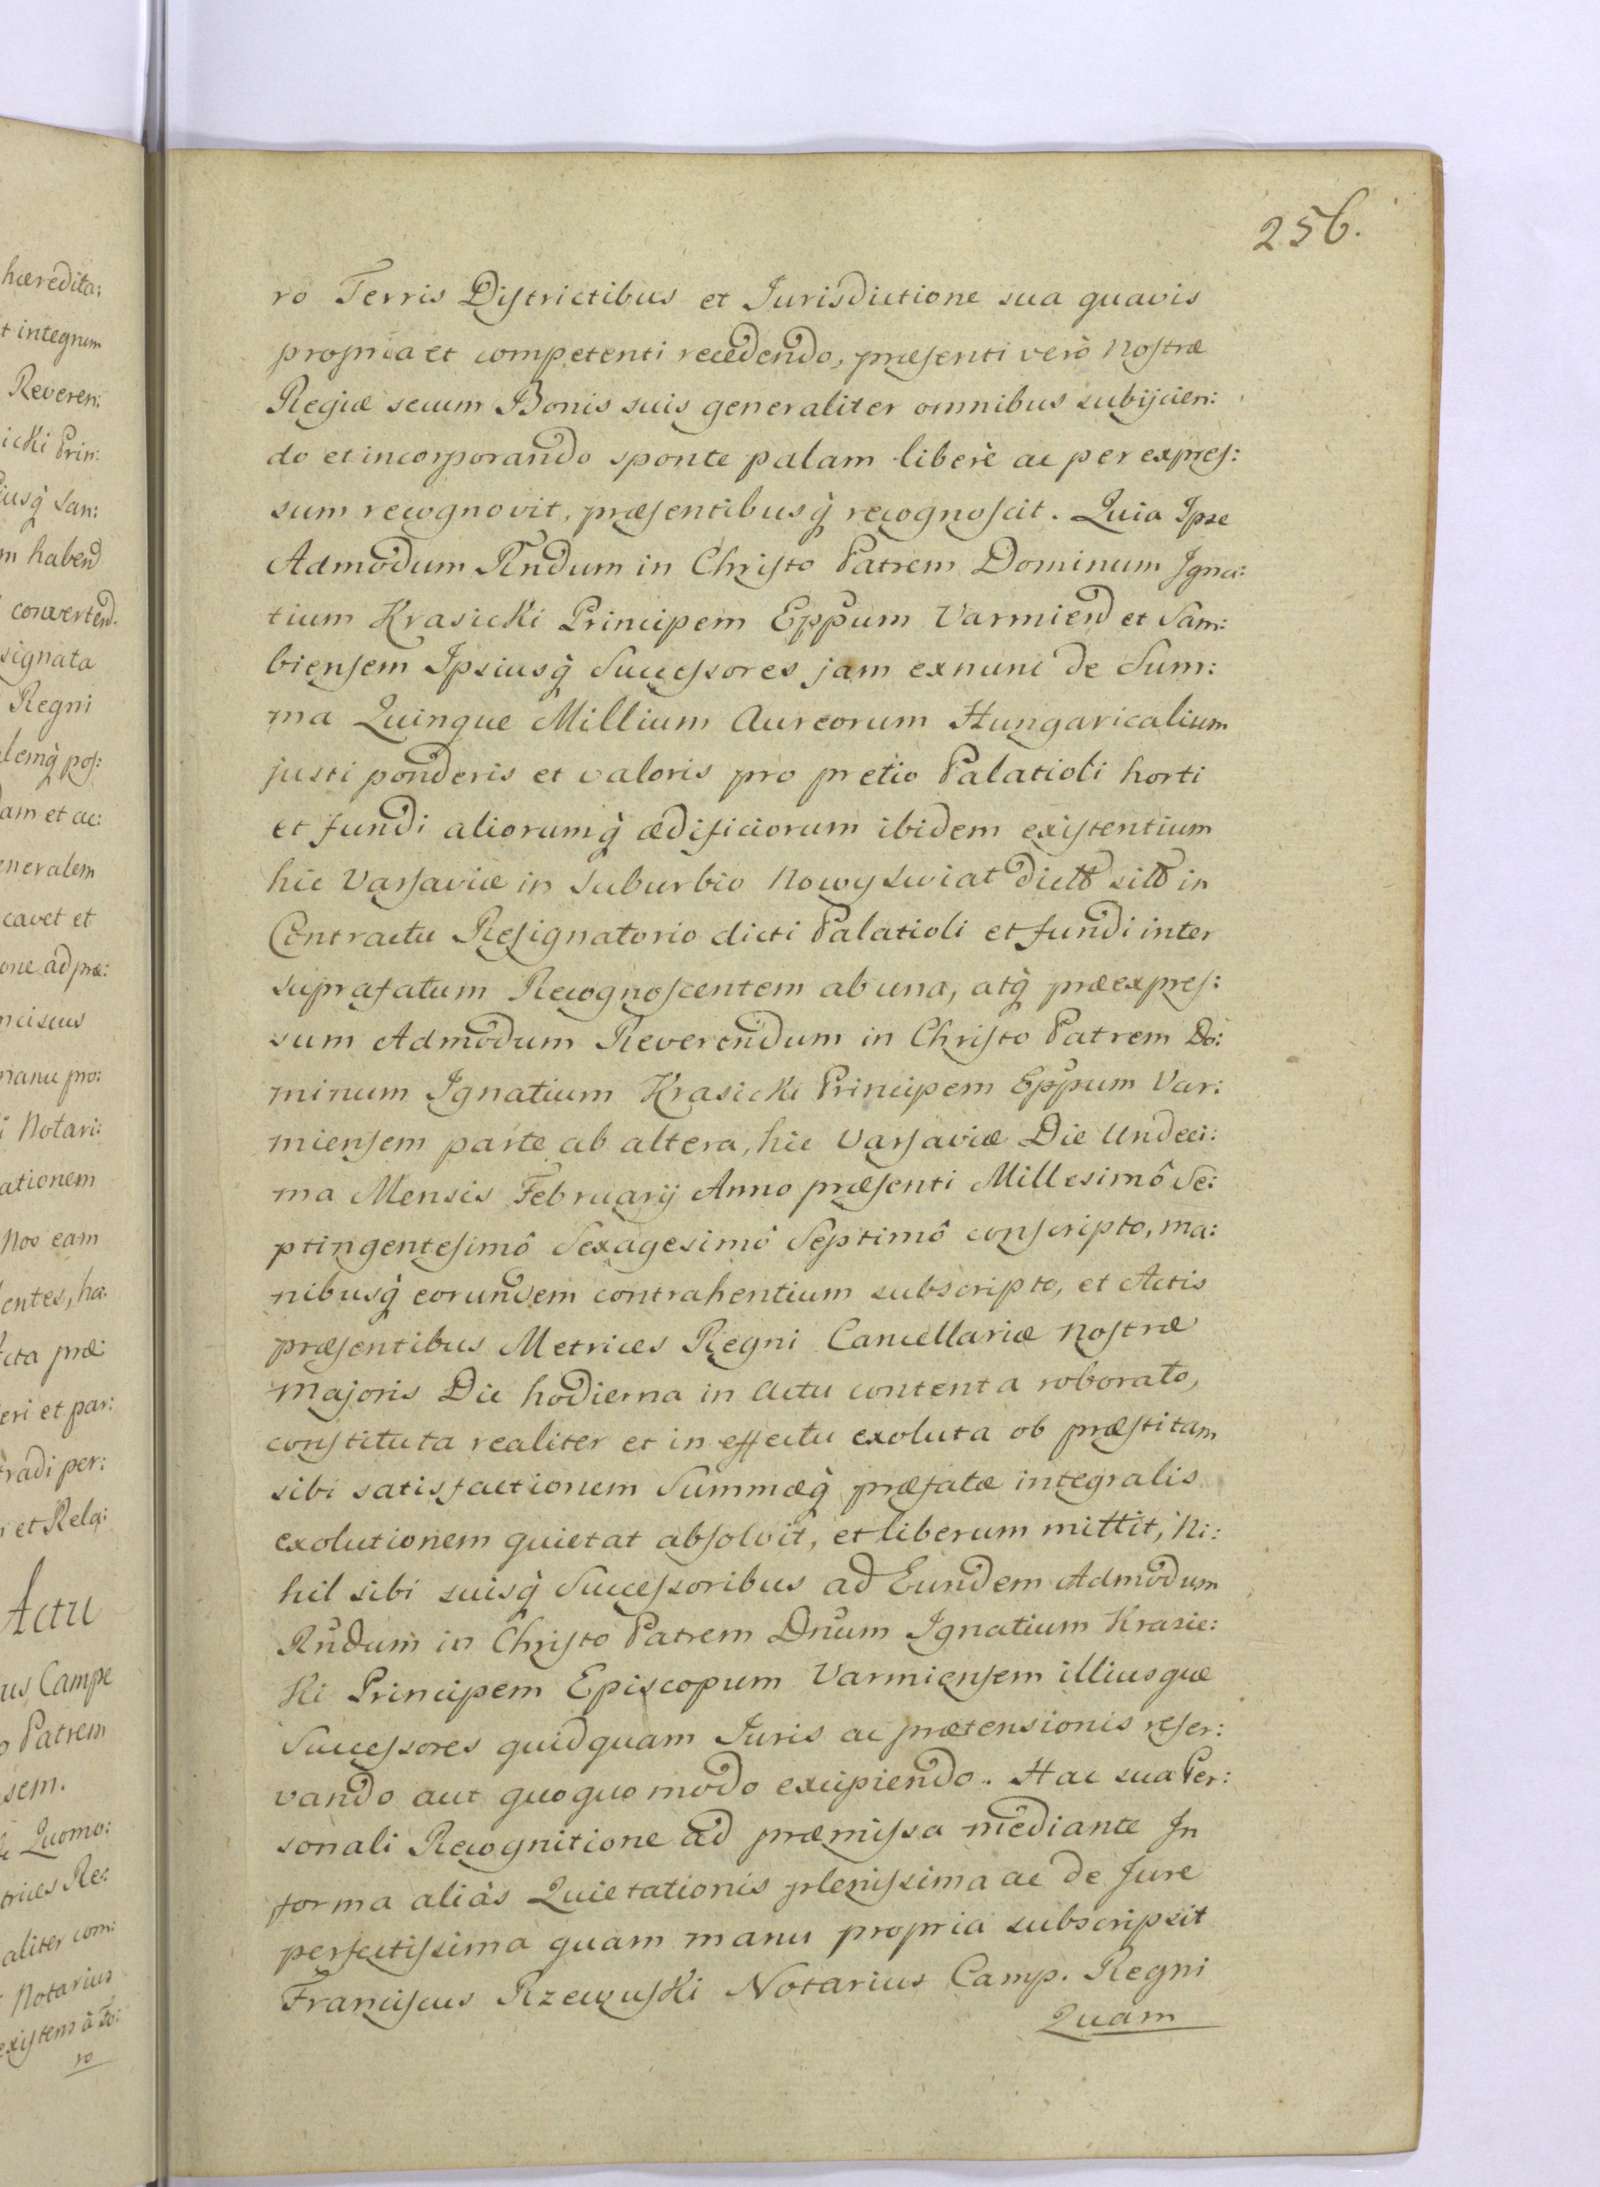 256.
ro Terris Districtibus et Jurisdictione sua quavis
propria et competenti recedendo, præsenti verò Nostræ
Regiæ secum Bonis suis generaliter omnibus subijcien:
do et incorporando sponte palam liberè ac per expres:
sum recognovit, præsentibusq̀ recognoscit. Quia Ipse
Admodum Rndum in Christo Patrem Dominum Igna:
tium Krasicki Principem Eppum Varmien et Sam:
biensem Ipsiusq̀ Successores jam exnunc de Sum:
ma Quinque Millium Aureorum Hungaricalium
justi ponderis et valoris pro pretio Palatioli horti
et fundi aliorumq̀ ædificiorum ibidem existentium
hic Varsaviæ in Suburbio Nowy Swiat dicto sito in
Contractu Resignatorio dicti Palatioli et fundi inter
suprafatum Recognoscentem ab una, atq̀ præexpres:
sum Admodum Reverendum in Christo Patrem Do:
minum Ignatium Krasicki Principem Eppum Var:
miensem parte ab altera, hic Varsaviæ Die Undeci:
ma Mensis February Anno præsenti Millesimô Se:
ptingentesimô Sexagesimô Septimô conscripto, ma:
nibusq̀ eorundem contrahentium subscripto, et Actis
præsentibus Metrices Regni Cancellariæ Nostræ
Majoris Die hodierna in Actu contenta roborato,
constituta realiter et in effectu exoluta ob præstitam
sibi satisfactionem Summæq̀ præfatæ integralis
exolutionem quietat absolvit, et liberum mittit, Ni:
hil sibi suisq̀ Successoribus ad Eundem Admodum
Rndum in Christo Patrem Dnum Ignatium Krasic:
ki Principem Episcopum Varmiensem illiusque
Successores quidquam Juris ac prætensionis reser:
vando aut quoquo modo excipiendo. Hac sua Per:
sonali Recognitione ad præmissa mediante In
forma aliàs Quietationis plenissima ac de Jure
perfectissima quam manu propria subscripsit
Franciscus Rzewuski Notarius Camp. Regni
Quam
hæredita:
t integrum
Reveren:
icki Prin:
iusq̀ Sam:
m habend
convertend.
signata
Regni
lemq̀ pos:
dam et ac:
eneralem
cavet et
one ad præ:
nciscus
manu pro:
i Notari:
ationem
Nos eam
entes, ha:
cta præ
eri et par:
tradi per:
et Rela:
Actu
us Campe
o Patrem
sem.
Quomo:
trices Re:
aliter com:
Notarius
existens à Fo:
ro